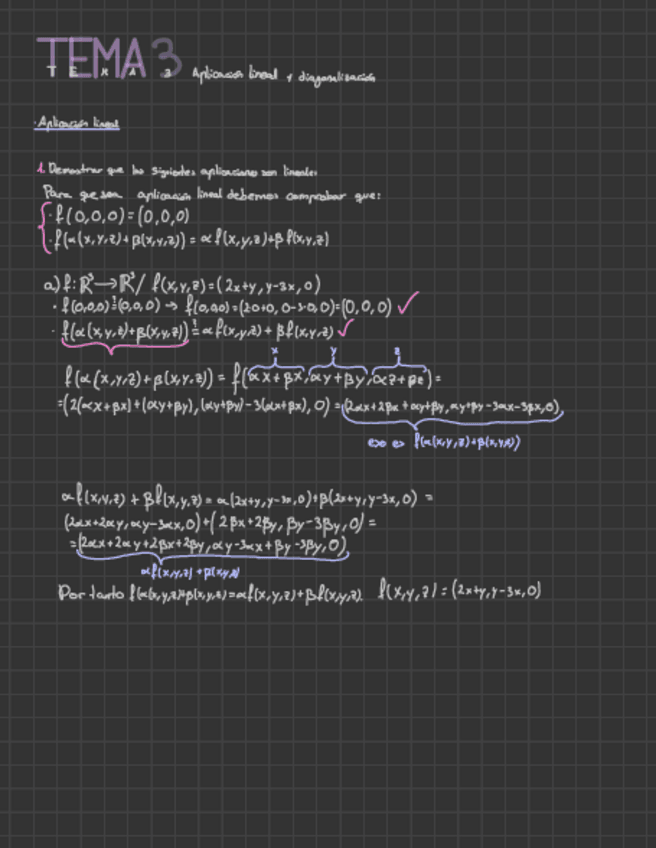 TEMA 3
TEMA 3 Aplicación lineal y diagonalización
·Aplicación lineal
1. Demostrar que las siguientes aplicaciones son lineales
Para que sea aplicación lineal debemos comprobar que:
· f(0,0,0)=(0,0,0)
· f(α(x,y,z)+β(x,y,z)) = αf(x,y,z)+βf(x,y,z)
a) f: ℝ³→ℝ³/ f(x,y,z)=(2x+y, y-3x, 0)
· f(0,0,0)=(0,0,0) → f(0,0,0)=(2·0+0, 0-3·0, 0)=(0,0,0) ✓
· f(α(x,y,z)+β(x,y,z)) = αf(x,y,z) + βf(x,y,z) ✓
x y z
f(α(x,y,z)+β(x,y,z)) = f(αx+βx, αy+βy, αz+βz) =
=(2(αx+βx)+(αy+βy), (αy+βy)-3(αx+βx), 0) = (2αx+2βx+αy+βy, αy+βy-3αx-3βx, 0)
f(α(x,y,z)+β(x,y,z))
αf(x,y,z) + βf(x,y,z) = α(2x+y, y-3x, 0)+β(2x+y, y-3x, 0) =
(2αx+2αy, αy-3αx, 0)+(2βx+2βy, βy-3βy, 0) =
=(2αx+2αy+2βx+2βy, αy-3αx+βy-3βy, 0)
αf(x,y,z)+β(x,y,z)
Por tanto f(α(x,y,z)+β(x,y,z))=αf(x,y,z)+βf(x,y,z). f(x,y,z)=(2x+y, y-3x, 0)